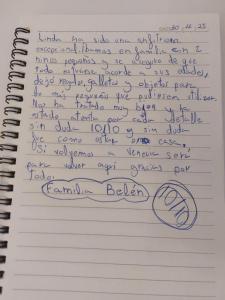 Linda ha sido una anfitriona
excepcional íbamos en familia con 2
niños pequeños y se aseguro de que
todo estuviese acorde a sus edades,
dejó regalo, galletas y objetos para
los más pequeños que pudiesen utilizar.
Nos ha tratado muy bien y ha
estado atenta por cada detalle
sin duda 10/10 y sin duda
fue como estar en casa,
si volvemos a Venecia será
para volver aquí gracias por
todo:
Familia Belén
10/10